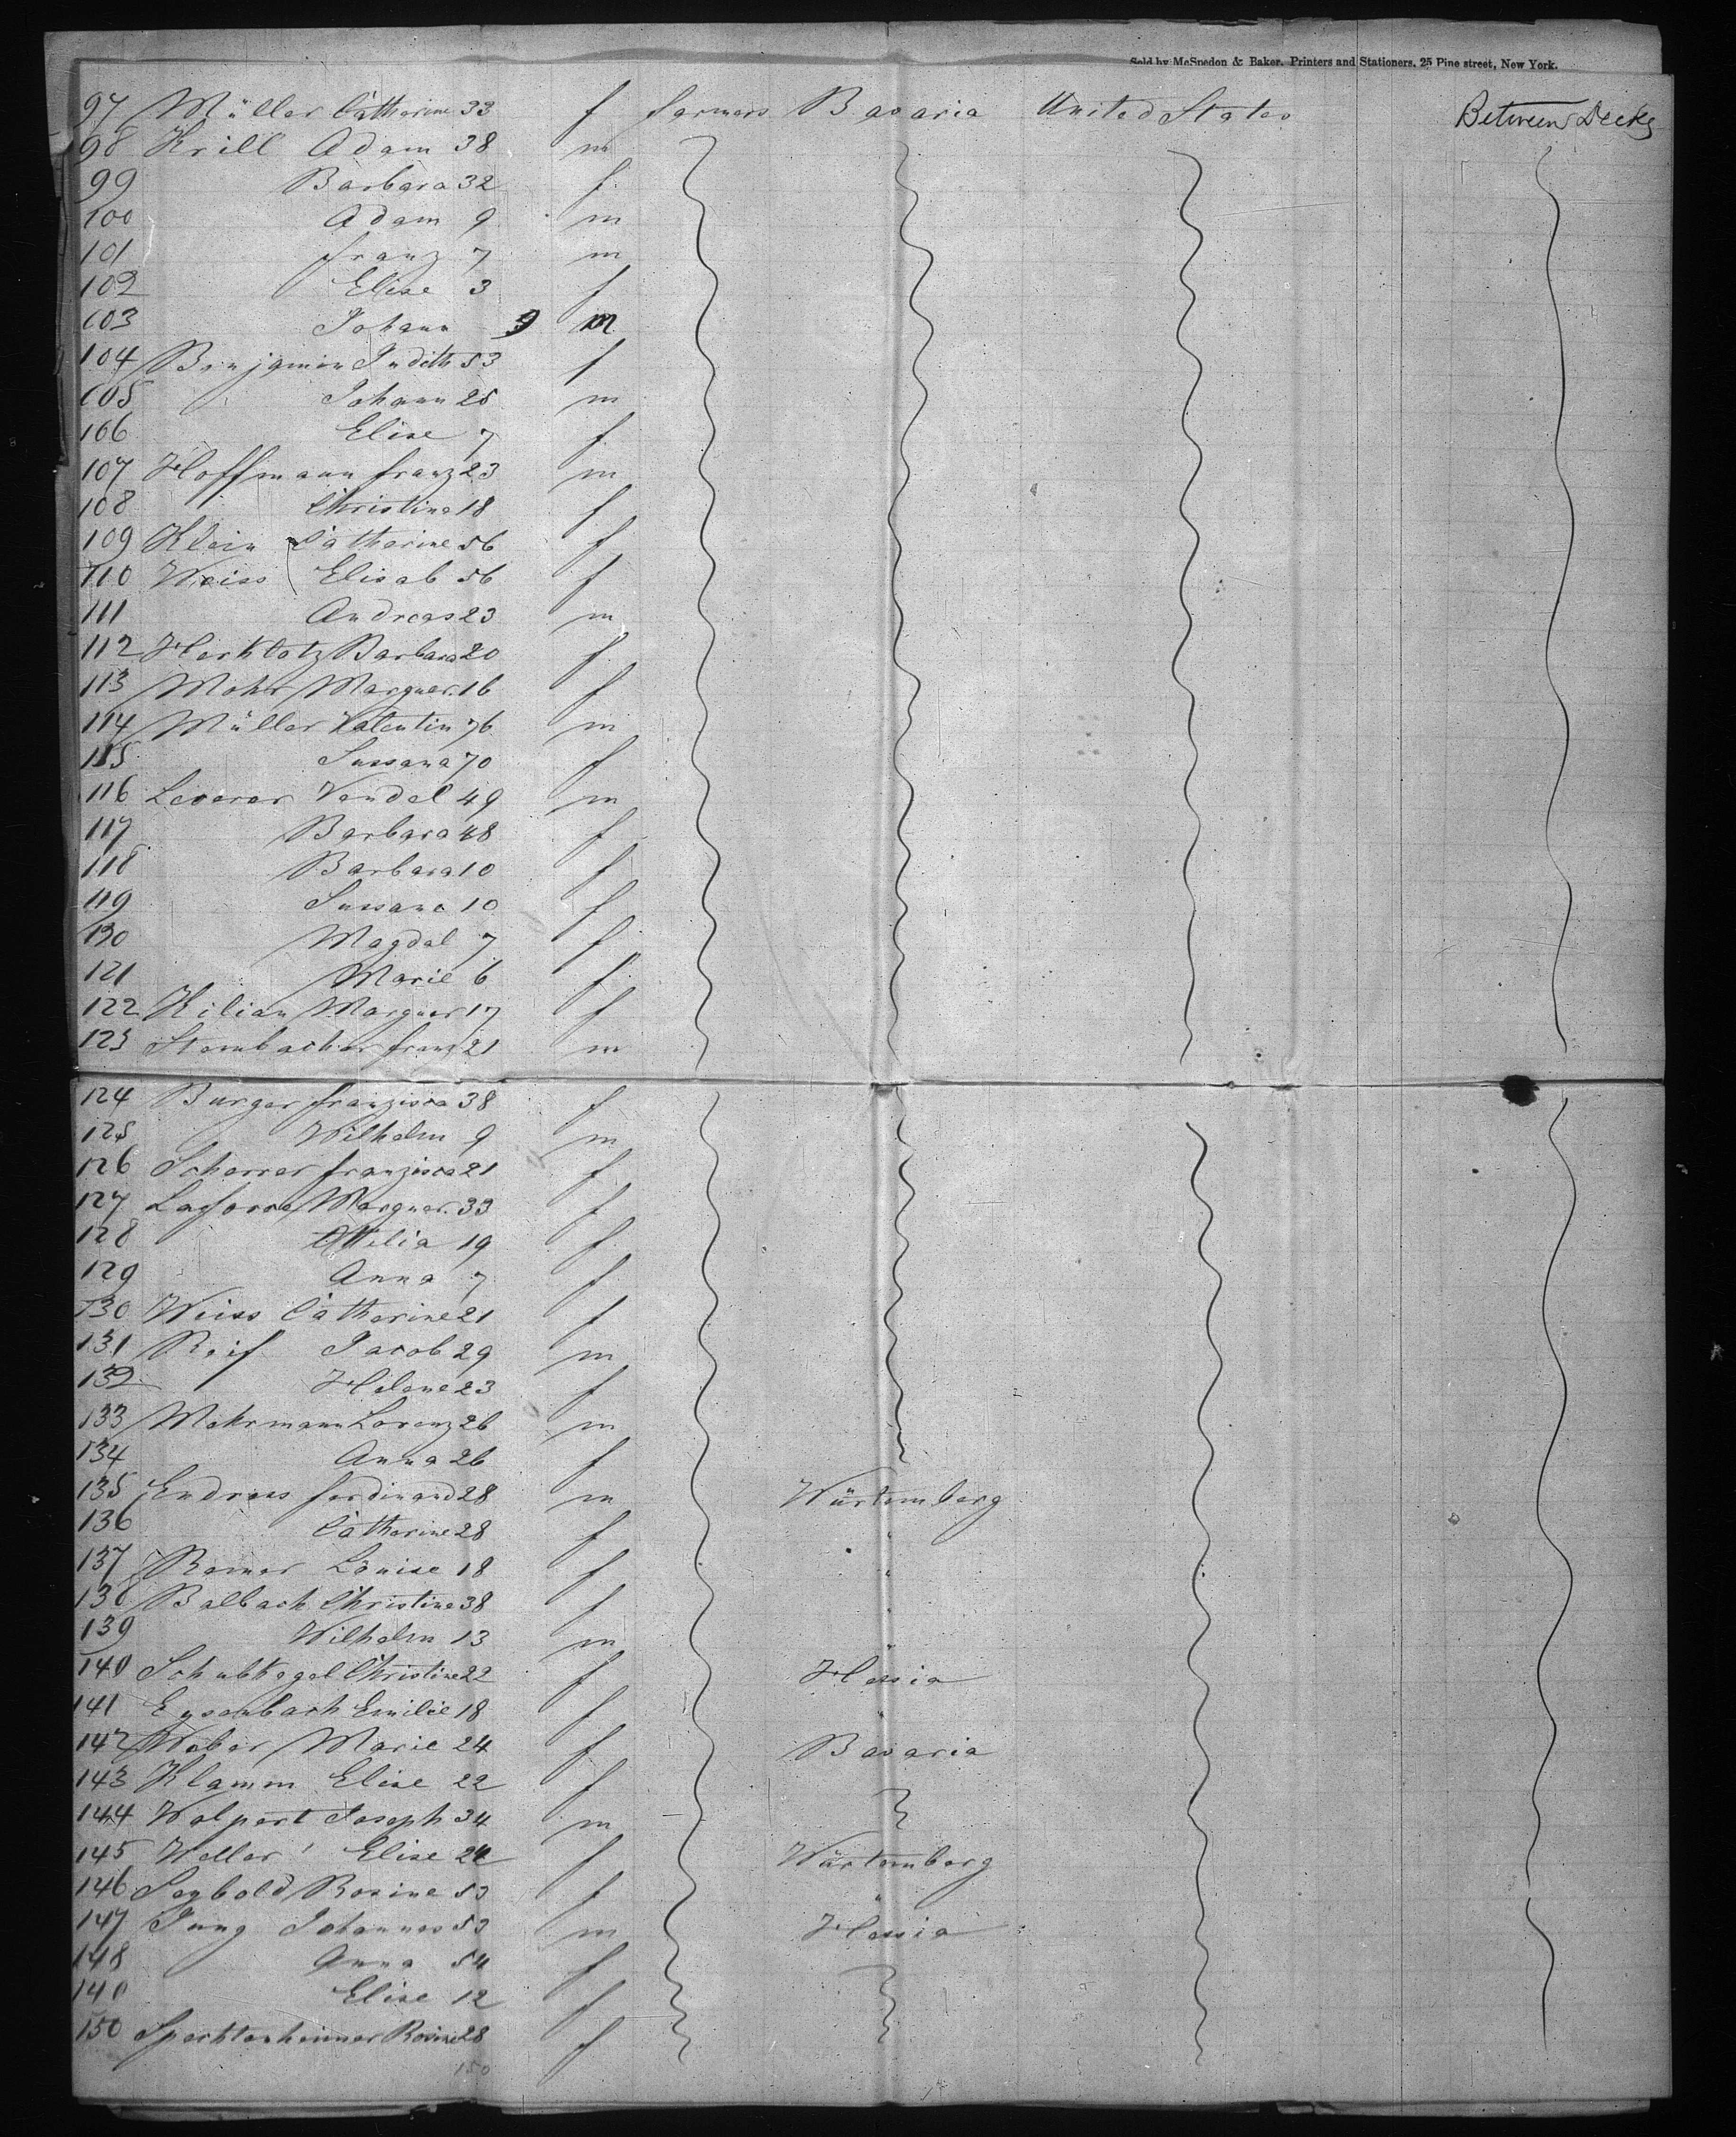 Sold by McSpedon & Baker, Printers and Stationers, 25 Pine street, New York.
97 Müller Catherine 33 f farmers Bavaria United States Between Decks
98 Krill Adam 38 m
99 Barbara 32 f
100 Adam 9 m
101 franz 7 m
102 Elise 3 f
103 Johann 9 m
104 Benjamin Judith 53 f
105 Johann 25 m
106 Elise 7 f
107 Hoffmann franz 23 m
108 Christina 18 f
109 Klein Catherine 56 f
110 Weiss Elisab 56 f
111 Andreas 23 m
112 Herklotz Barbara 20 f
113 Mohr Marguer. 16 f
114 Müller Valentin 76 m
115 Sussana 70 f
116 Leverer Vendel 49 m
117 Barbara 48 f
118 Barbara 10 f
119 Sussana 10 f
120 Magdal 7 f
121 Marie 6 f
122 Kilian Marguer 17 f
123 Sternbacher franz 21 m
124 Burger franzisca 38 f
125 Wilhelm 9 m
126 Scherrer franzisca 21 f
127 Marguer. 33 f
128 Ottilia 19 f
129 Anna 7 f
130 Weiss Catherine 21 f
131 Reif Jacob 29 m
132 Helene 23 f
133 Mehrmann Lorenz 26 m
134 Anna 26 f
135 Endress ferdinand 28 m Würtemberg
136 Catherine 28 f "
137 Remer Louise 18 f "
138 Balbach Christine 38 f "
139 Wilhelm 13 m "
140 Schubkegel Christine 22 f Hessia
141 Eysenbach Emilie 18 f "
142 Weber Marie 24 f Bavaria
143 Klamm Elise 22 f
144 Walpert Joseph 34 m
145 Weller Elise 24 f Würtemberg
146 Seybold Rosine 53 f "
147 Jung Johannes 53 m Hessia
148 Anna 54 f
149 Elise 12 f
150 Rosine 28 f
150